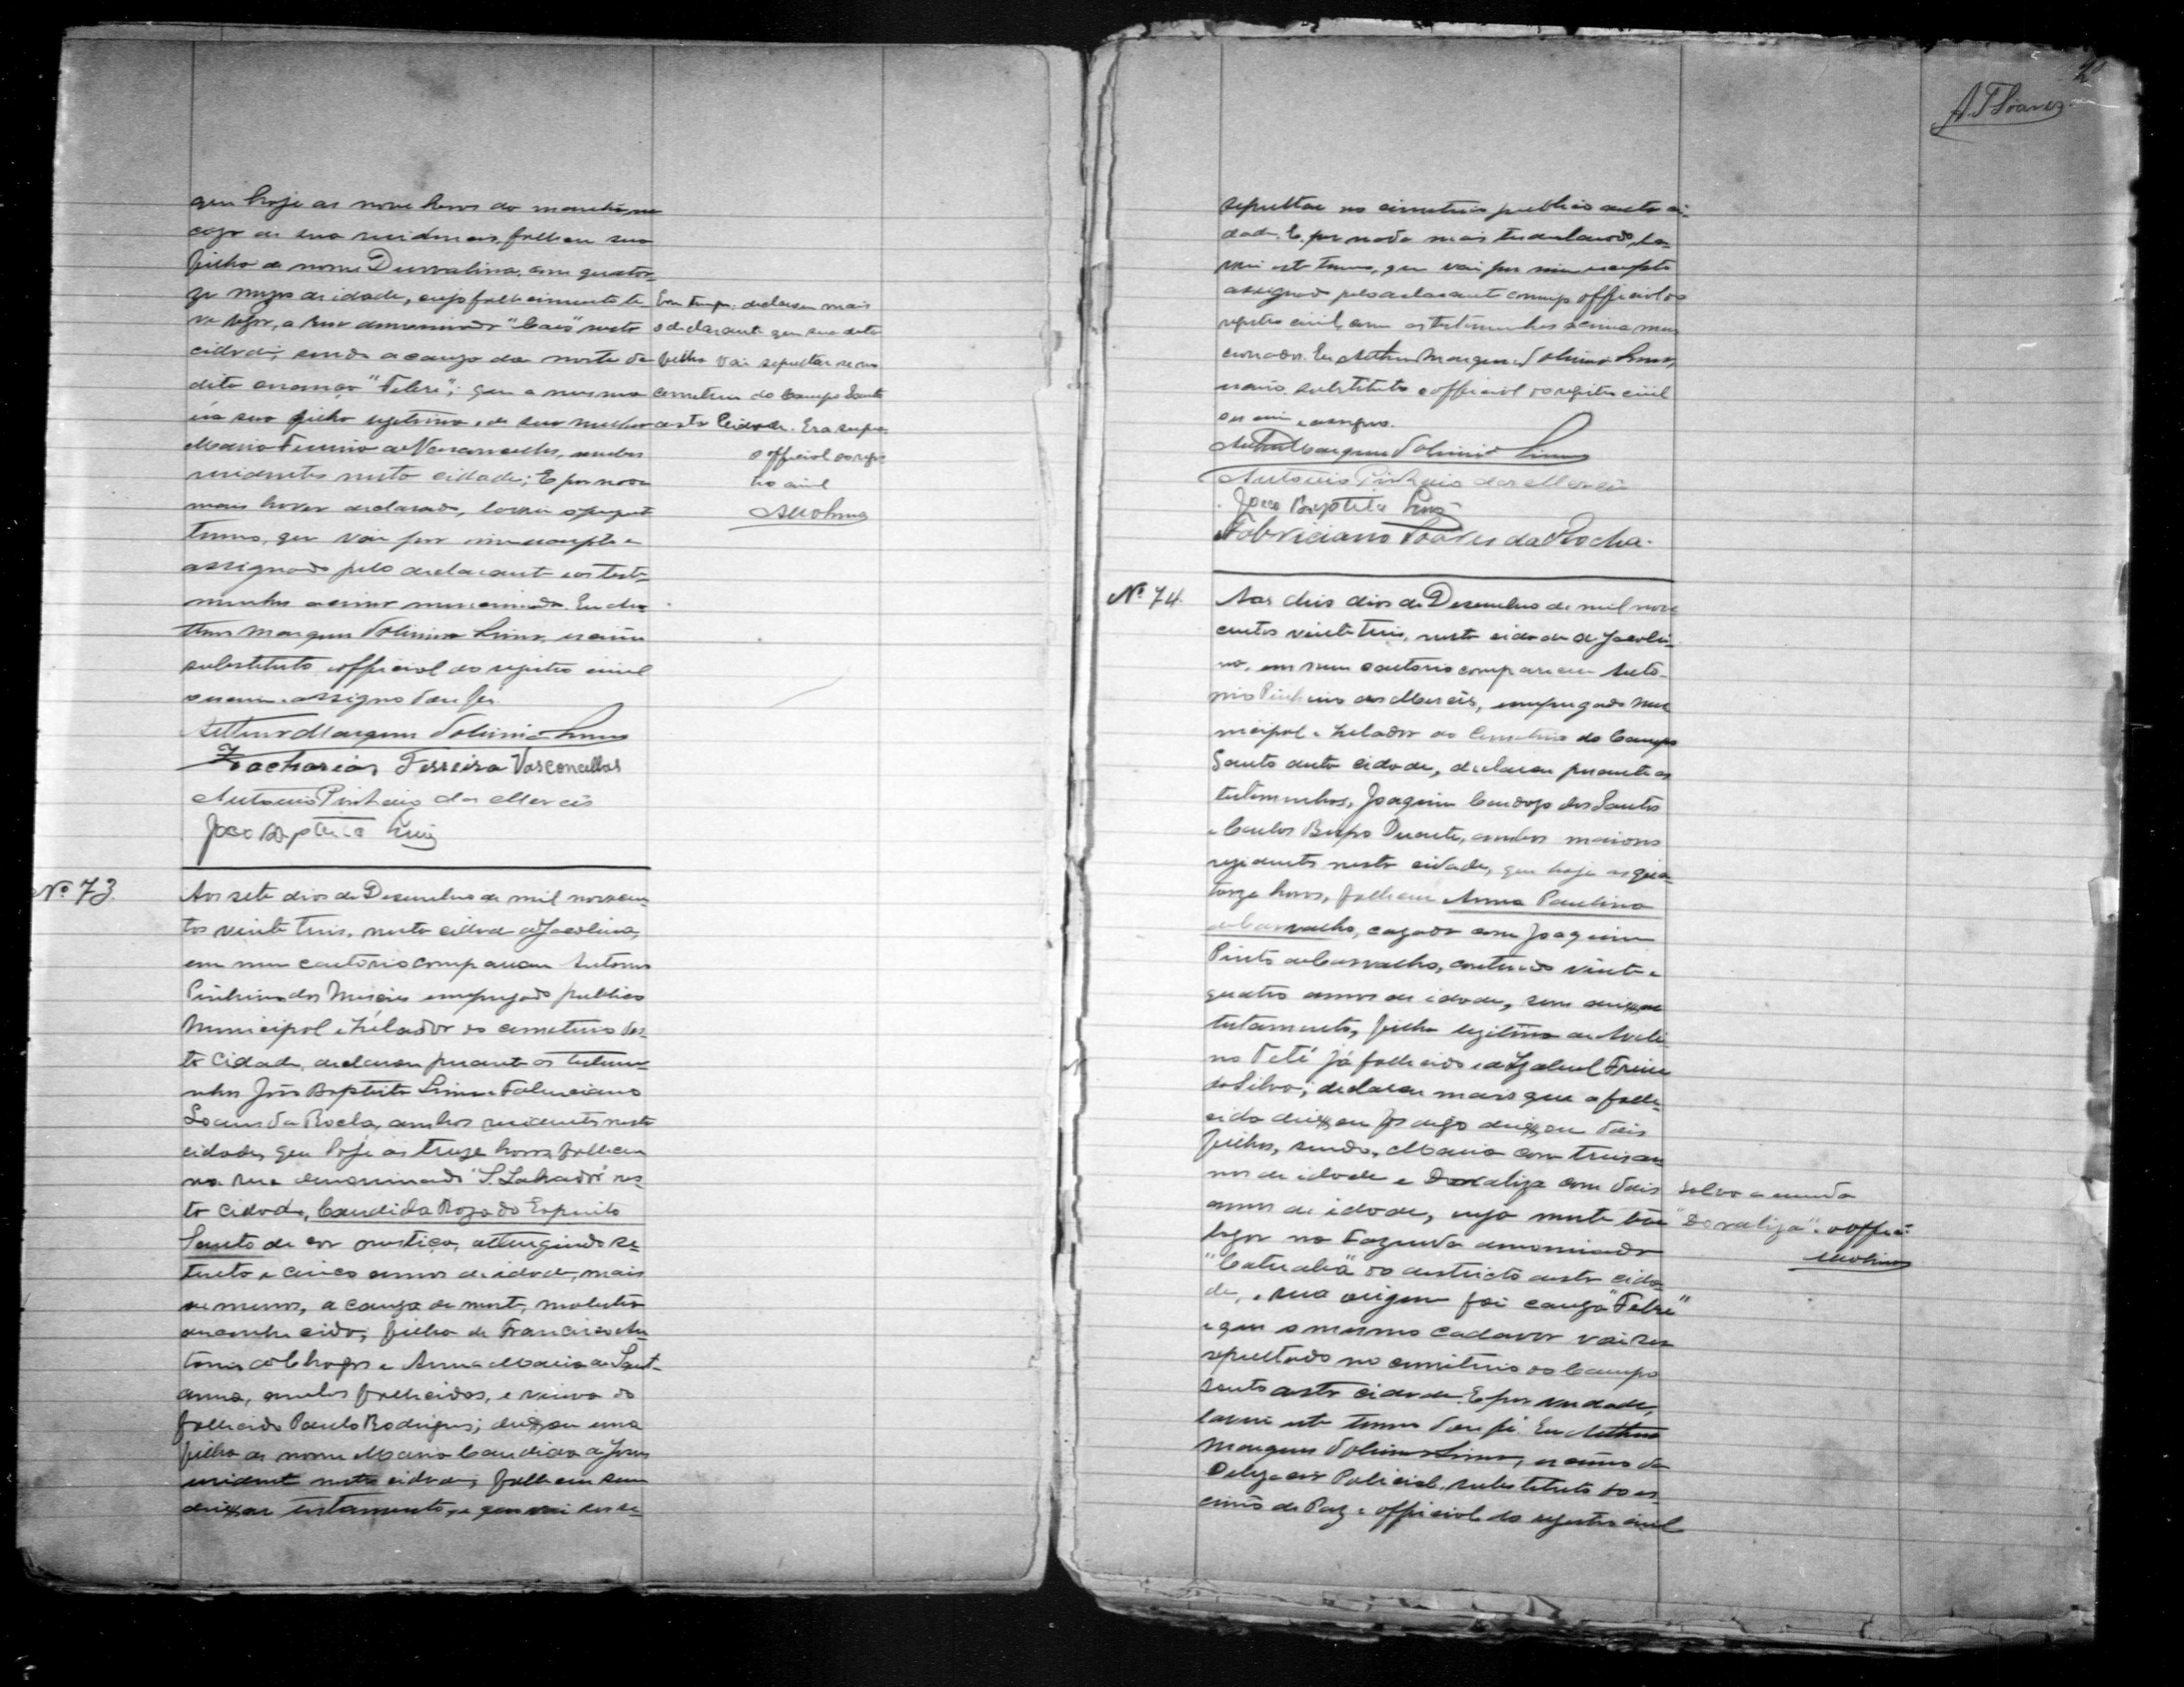 que hoje as nove horas da manhã, na
caza de sua residencia, falleceu sua
filha de nome Durvalina, com quator-
ze mezes de idade, cujo fallecimento te-
ve logar, a Rua denominada "Caes" nesta
cidade; sendo a causa da morte da
dita creança "Febre"; que a mesma
era sua filha legitima e de sua mulher
Maria Firmina de Vasconcellos, ambos
residentes nesta cidade; E por nada
mais haver declarado, lavrei o presente
termo, que vai por mim escripto e
assignado pelo declarante e as teste-
munhas acima mencionadas. Eu Ar-
thur Marques Lima, escrivão
substituto e official do registro civil
escrevi e assigno dou fé.
Arthur Marques Lima
Zacharias Ferreira Vasconcellos
Antonio Pinheiro das Mercês
João Baptista Lima
Em tempo: declarou mais
o declarante que sua dita
filha vai sepultar-se no
cemiterio do Campo Santo
desta Cidade. Era supra.
o official do regis-
tro civil
No. 73.
Aos sete dias de Desembro de mil novecen-
tos vinte tres, nesta cidade de Jacobina,
em meu cartorio compareceu Antonio
Pinheiro das Mercês empregado publico
Municipal e Zelador do cemeterio des-
ta Cidade, declarou perante as testemu-
nhas João Baptista Lima e Fabriciano
Soares da Rocha, ambos residentes nesta
cidade, que hoje as treze horas falleceu
na rua denominada "S. Salvador" nes-
ta cidade, Candida Roza do Espirito
Santo de cor mestiça, attingindo se-
tenta e cinco annos de idade, mais
ou menos, a causa da morte, molestia
desconhecida, filha de Francisco An-
tonio das Chagas e Anna Maria de Sant-
anna, ambos fallecidos, e viuva do
fallecido Paulo Rodrigues; deixou uma
filha de nome Maria Candida de Jesus
residente nesta cidade, falleceu sem
deixar testamento, e que vai ser se-
A. T. Soares
sepultar no cimeterio publico desta ci-
dade. E por nada mais ter declarado, la-
vrei este termo, que vai por mim escripto
assignado pelo declarante comigo official do
registro civil, com as testemunhas acima men-
cionadas. Eu Arthur Marques Lima,
escrivão substituto e official do registro civil
escrevi e assigno.
Arthur Marques Lima
Antonio Pinheiro das Mercês
João Baptista Lima
Fabriciano Soares da Rocha.
No. 74.
Aos dias de Desembro de mil nove
centos vinte tres, nesta cidade de Jacobi-
na, em meu cartorio compareceu Anto-
nio Pinheiro das Mercês, empregado mu-
nicipal e Zelador do Cemeterio do Campo
Santo desta cidade, declarou perante as
testemunhas, Joaquim Cardozo dos Santos
e Carlos Bispo Duarte, ambos maiores
rezidentes nesta cidade, que hoje as qua-
torze horas, falleceu Anna Paulina
de Carvalho, cazada com Joaquim
Pinto de Carvalho, contando vinte e
quatro annos de idade, sem deixar
testamento, filha legitima de Aveli-
no Teté já fallecido e de Izabel Freire
da Silva; declarou mais que a falle-
cida deixou digo deixou dois
filhos, sendo, Maria com tres an-
nos de idade e Doraliza com dois
annos de idade, cuja morte teve
logar na Fazenda denominada
do destricto desta cida-
de, e sua origem foi cauza "Febre"
e que o mesmo cadaver vai ser
sepultado no cemiterio do Campo
Santo desta cidade. E por verdade,
lavrei este termo dou fé. Eu Arthur
Marques Lima, escrivão da
Delegacia Policial, substituto do es-
crivão de Paz e official do registro civil
Salvo a emenda
"Doraliza". o offici-